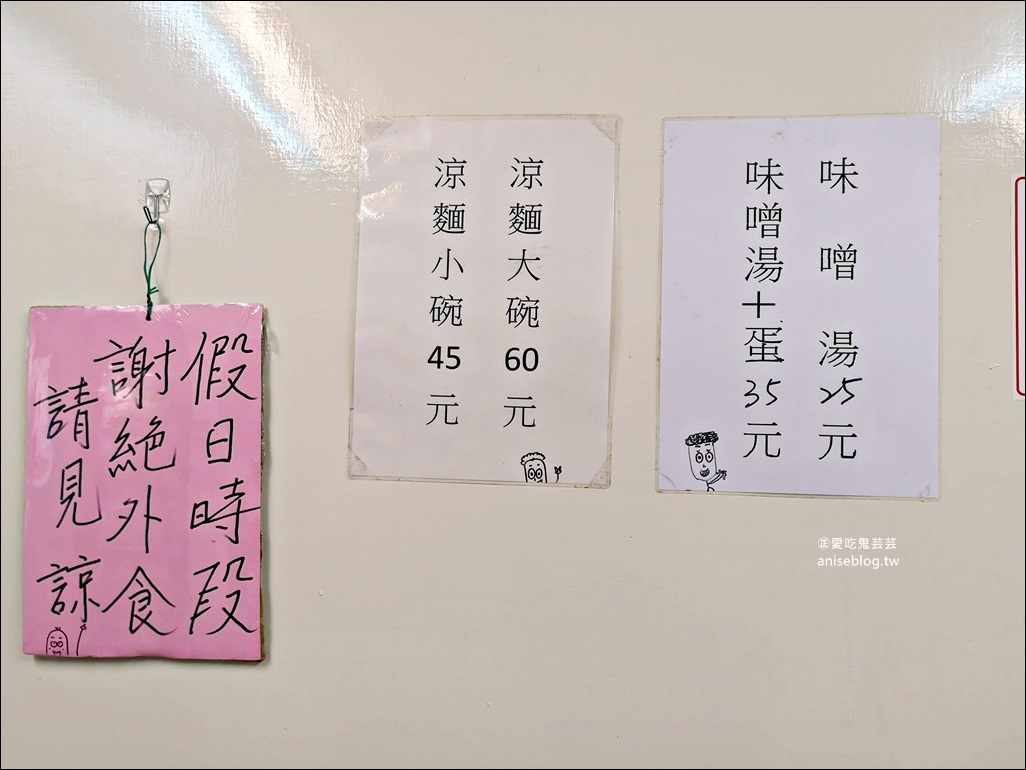 假日時段
謝絕外食
請見諒
涼麵大碗60元
涼麵小碗45元
味噌湯25元
味噌湯+蛋35元
㊣愛吃鬼芸芸
aniseblog.tw